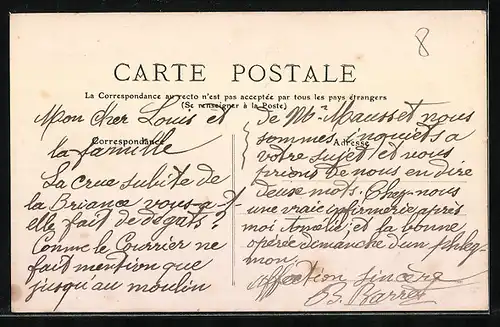 8
CARTE POSTALE
La Correspondance au recto n'est pas acceptée par tous les pays étrangers
(Se renseigner à la Poste)
Correspondance
Adresse
Mon cher Louis et
la famille
La crue subite de
la Briance vous a-t-
elle fait de dégats?
Comme le Courrier ne
fait mention que
jusqu'au moulin
de Mr Mausset nous
sommes inquiets a
votre sujet et nous
prions de nous en dire
deux mots. Chez-nous
une vraie infirmerie après
moi Amélie, et la bonne
opérée dimanche d'un phleg-
mon.
affection sincère
B. Barret